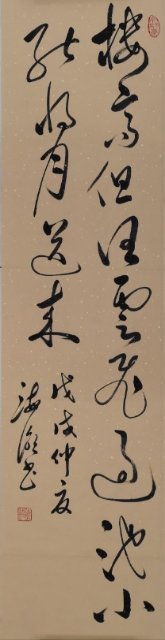 楼高但任云飞过池小
能将月送来
戊戌仲夏
海